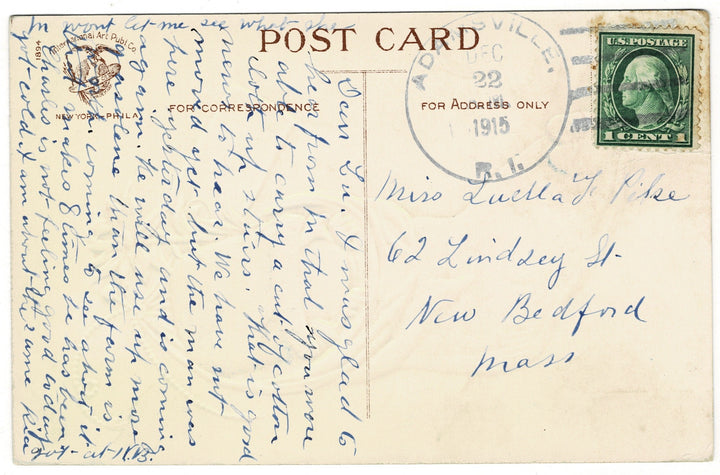 POST CARD
1899
International Art Publ. Co.
NEW YORK - PHILA.
FOR CORRESPONDENCE
FOR ADDRESS ONLY
ADAMSVILLE,
DEC
22
1915
R. I.
U.S. POSTAGE
1 CENT 1
Miss Luella Y Pike
62 Lindsey St-
New Bedford
Mass
Dear Lu. I was glad to
hear from M that you were
able to carry a cut of cotton
cloth up stairs. That is good
news to hear. We have not
moved yet but the man was
here yesterday and is coming
again. He will use up more
gasolene than the farm is
coming to see about it
makes 8 times he has been
Charles is not feeling good today
got cold. I am about the same
M wont let me see what she